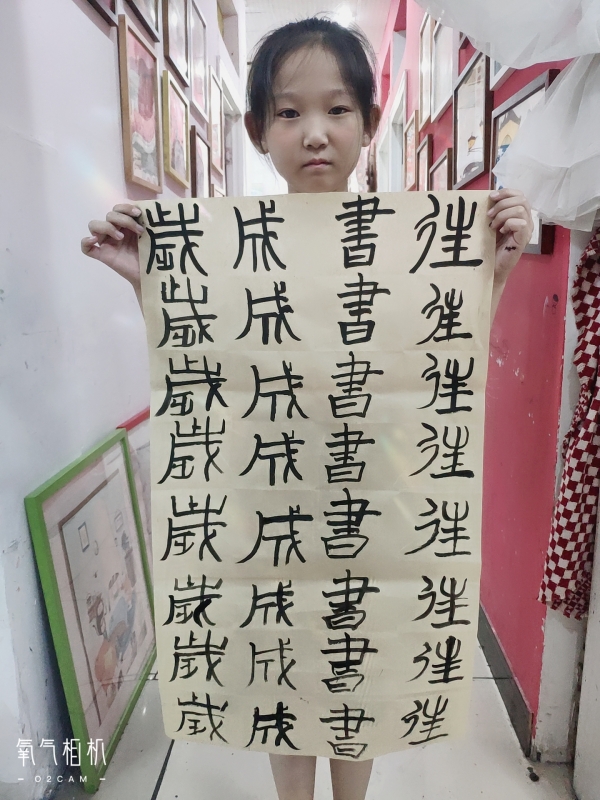 往往往往往往往往
書書書書書書書書
成成成成成成成成
歲歲歲歲歲歲歲歲
氧气相机
O2CAM